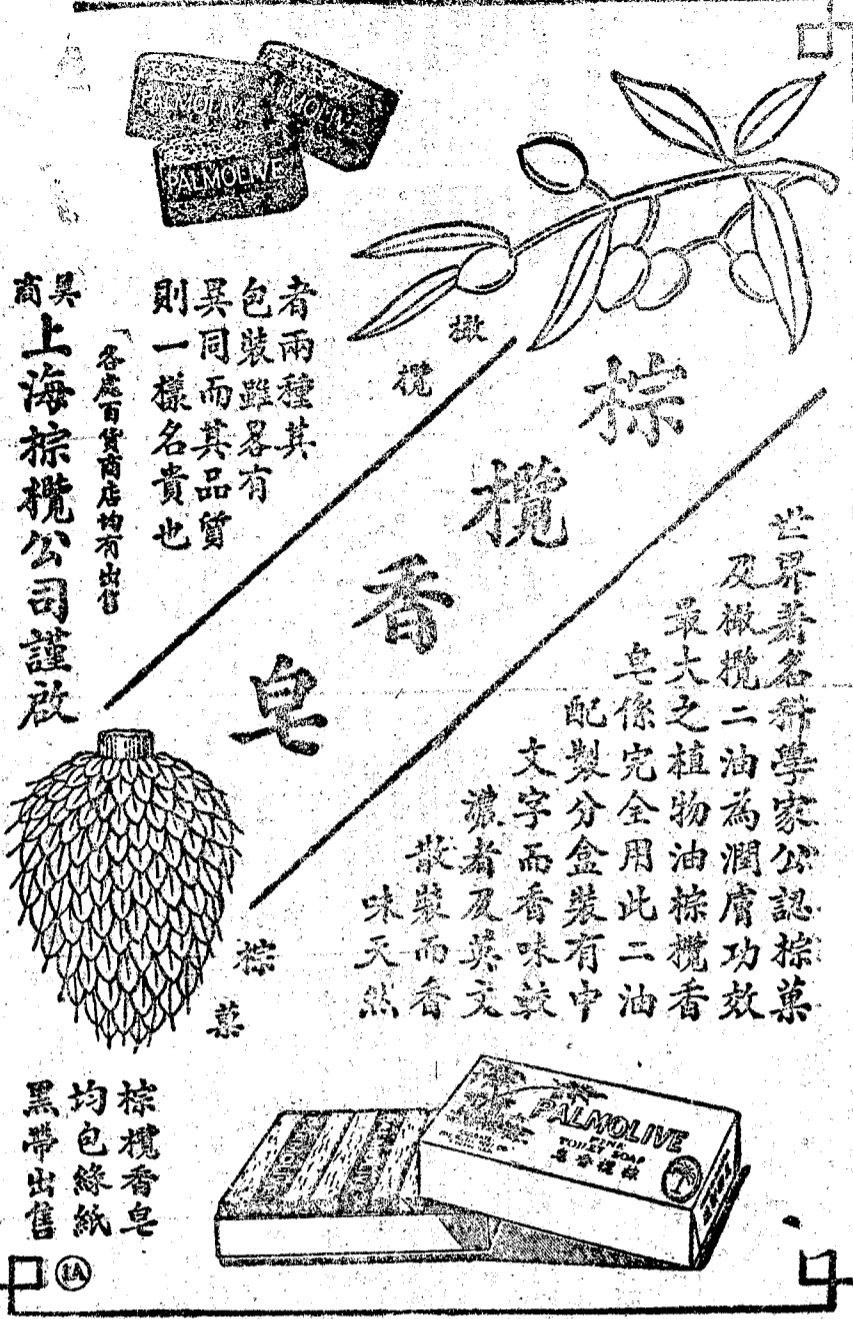 PALMOLIVE
PALMOLIVE
PALMOLIVE
橄
欖
棕
欖
香
皂
世界著名科學家公認棕菓
及橄欖二油為潤膚功效
最大之植物油棕欖香
皂係完全用此二油
配製分盒裝有中
文字而香味較
濃者及英文
散裝而香
味天然
者兩種其
包裝雖畧有
異同而其品質
則一樣名貴也
各處百貨商店均有出售
異商
上海棕欖公司謹啟
棕
菓
棕欖香皂
均包綠紙
黑帶出售
PALMOLIVE
TOILET SOAP
棕欖香皂
1A